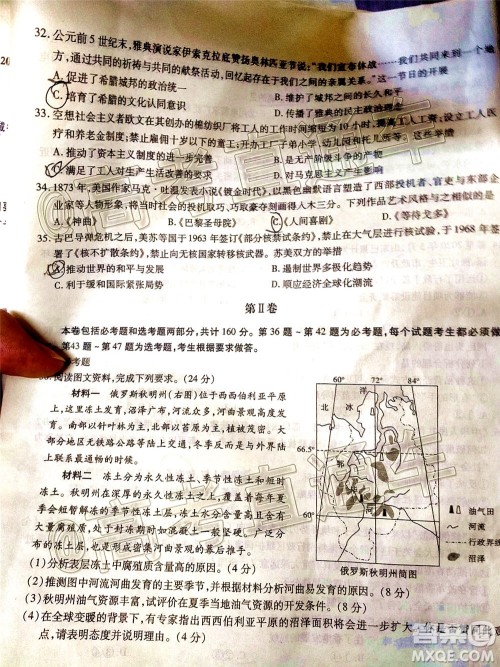 32. 公元前5世纪末,雅典演说家伊索克拉底赞扬奥林匹亚节说:“我们宣布休战……我们共同来到一个地
方,通过共同的祈祷与共同的献祭活动,回忆起存在于我们之间的亲属关系。”这一节日的开展
A. 促进了希腊城邦的政治统一
B. 维护了城邦之间的和平
C. 培育了希腊的文化认同意识
D. 传播了雅典的民主政治理念
33. 空想社会主义者欧文在其创办的棉纺织厂将工人的工作时间缩短为10小时,提高工人工资;设立工人医
疗和养老金制度;禁止雇佣十岁以下的童工;开办工厂子弟小学、幼儿园和托儿所等。这些举措
A. 推动了资本主义制度的进一步完善
B. 是无产阶级斗争的产物
满足了工人对生产生活改善的要求
D. 对马克思主义工人影响
34. 1873年,美国作家马克·吐温发表小说《镀金时代》,以黑色幽默语言塑造了西部投机者、官吏与东部企
业家等人物形象,将当时社会的投机取巧、巧取豪夺刻画得入木三分。下列作品艺术风格与之相似的是
A. 《神曲》
B. 《巴黎圣母院》
C. 《人间喜剧》
D. 《等待戈多》
35. 古巴导弹危机之后,美苏等国于1963年签订《部分核禁试条约》,禁止在大气层进行核试验,于1968年签
署了《核不扩散条约》,禁止向无核国家转移核武器。苏美双方的举措
推动世界的和平与发展
B. 遏制世界多极化趋势
C. 利于缓和国际紧张局势
D. 顺应经济全球化潮流
第Ⅱ卷
本卷包括必考题和选考题两部分,共计160分。第36题~第42题为必考题,每个试题考生都必须做
第43题~第47题为选考题,考生根据要求做答。
考题
阅读图文资料,完成下列要求。(24分)
材料一 俄罗斯秋明州(右图)位于西西伯利亚平原
上,这里冻土发育,沼泽广布,河流众多,河曲景观高度发
育。南部以针叶林为主,北部以苔原为主,植被茂密。大
部分地区无铁路公路等陆上交通,冬季反而是与外界陆
上联系最通畅的时候。
材料二 冻土分为永久性冻土、季节性冻土和短时
冻土。秋明州在深厚的永久性冻土之上,每年夏季都会
短暂解冻的季节性冻土,水分含量丰富且冻土腐殖质含
量大质量好。冻土中水分含量高会使冻土层组织富有
黏性,处于封冻期时如混凝土一般坚硬。广泛发育的冻
土层也是造成密集河曲景观的幕后推手。
(1)分析表层冻土中腐殖质含量高的原因。(4分)
(2)推测图中河流河曲发育的主要季节,并根据材料分析河曲易发育的原因。(8分)
(3)秋明州油气资源丰富,试评价在夏季当地油气资源的开发条件。(8分)
(4)在全球变暖的背景下,有专家指出西西伯利亚平原的沼泽面积将会进一步扩大
点,请表明态度并说明理由。(4分)
60° 72° 84°
北 冰 洋
66.5° 66.5°
鄂
河
60° 60°
油气田
河流
行政界线
沼泽
俄罗斯秋明州简图
答案圈
MXQE.COM